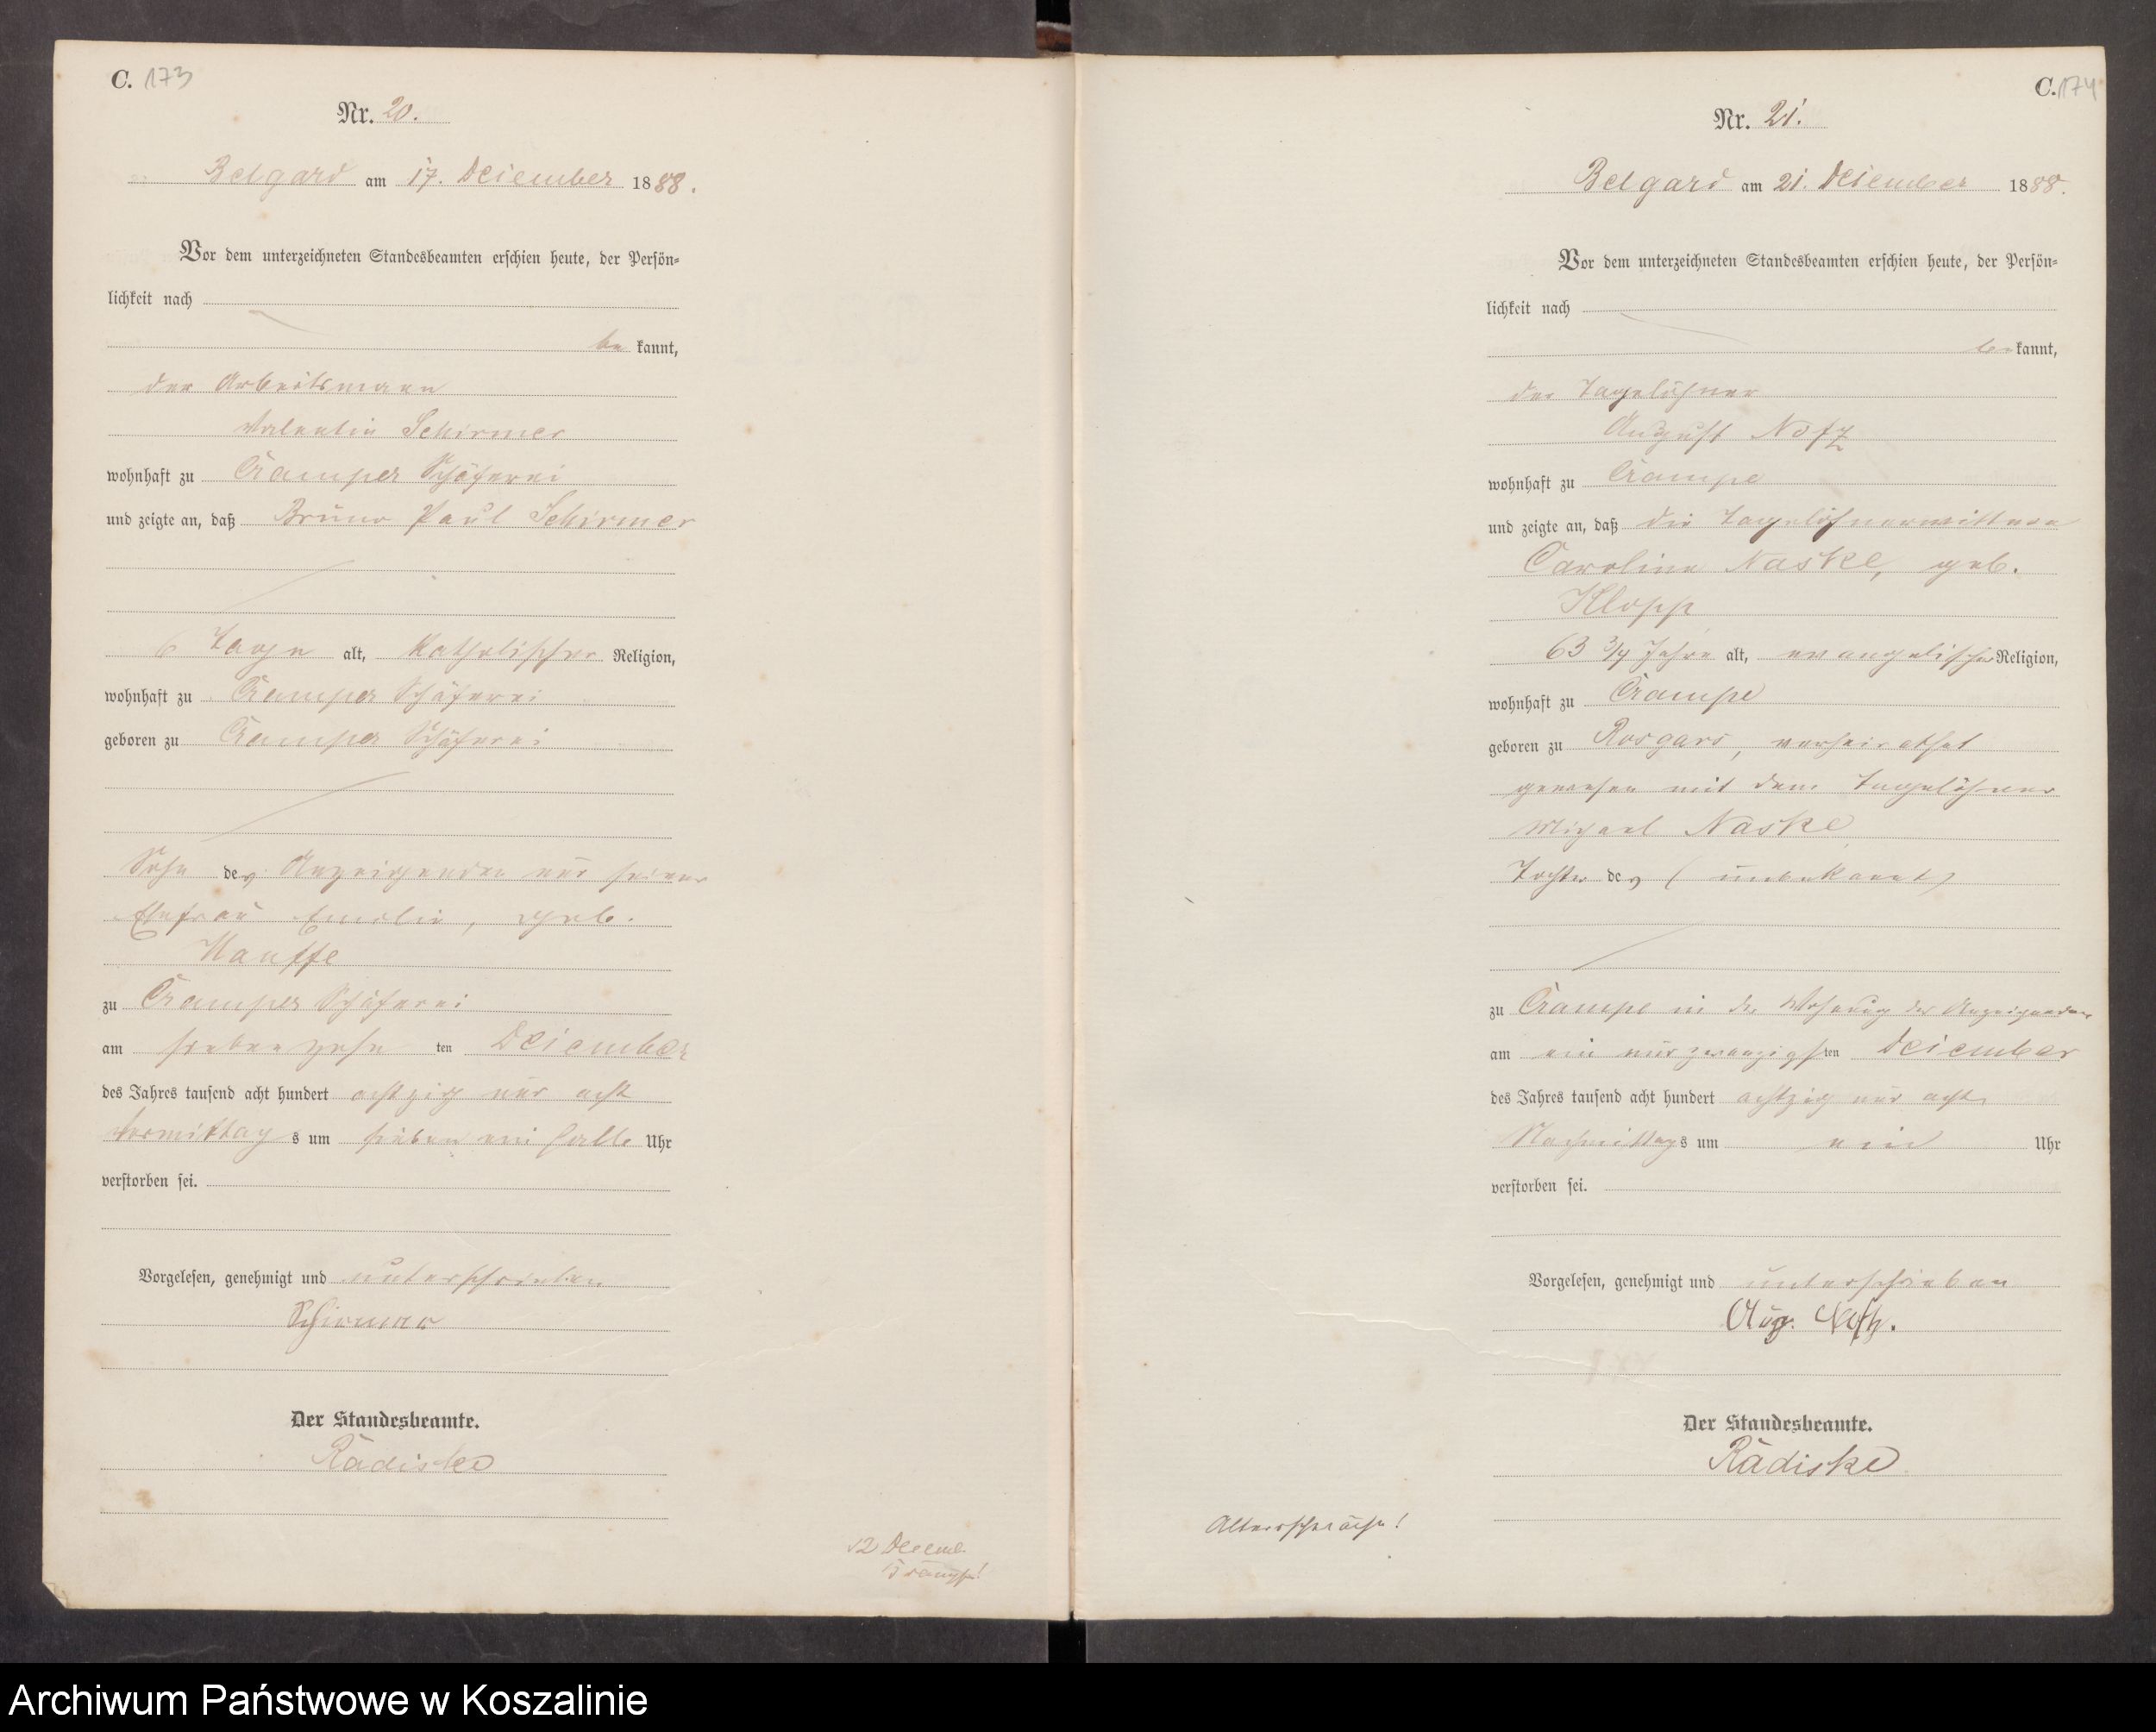 C. 173
Nr. 20.
Belgard am 17. Dezember 1888.
Vor dem unterzeichneten Standesbeamten erschien heute, der Persön-
lichkeit nach
be kannt,
der Arbeitsmann
Valentin Schirmer
wohnhaft zu Cramper Schäferei
und zeigte an, daß Bruno Paul Schirmer
6 Tage alt, katholischer Religion,
wohnhaft zu Cramper Schäferei
geboren zu Cramper Schäferei
Sohn des Anzeigenden und seiner
Ehefrau Emilie, geb.
zu Cramper Schäferei
am siebenzehn ten Dezember
des Jahres tausend acht hundert achtzig und acht
Vormittag s um sieben ein halb Uhr
verstorben sei.
Vorgelesen, genehmigt und unterschrieben
Schirmer
Der Standesbeamte.
Radiske
12 Decemb.
Krämpfe!
C. 174
Nr. 21.
Belgard am 21. Dezember 1888.
Vor dem unterzeichneten Standesbeamten erschien heute, der Persön-
lichkeit nach
be kannt,
der Tagelöhner
August
wohnhaft zu Crampe
und zeigte an, daß die Tagelöhnerwittwe
Caroline Naske, geb.
Klopp
63 3/4 Jahre alt, evangelischer Religion,
wohnhaft zu Crampe
geboren zu Rosgars, verheirathet
gewesen mit dem Tagelöhner
Michael Naske
Tochter des (unbekannt)
zu Crampe in der Wohnung des Anzeigenden
am ein und zwanzigsten Dezember
des Jahres tausend acht hundert achtzig und acht
Nachmittags um ein Uhr
verstorben sei.
Vorgelesen, genehmigt und unterschrieben
Aug.
Der Standesbeamte.
Radiske
Altersschwäche!
Archiwum Państwowe w Koszalinie